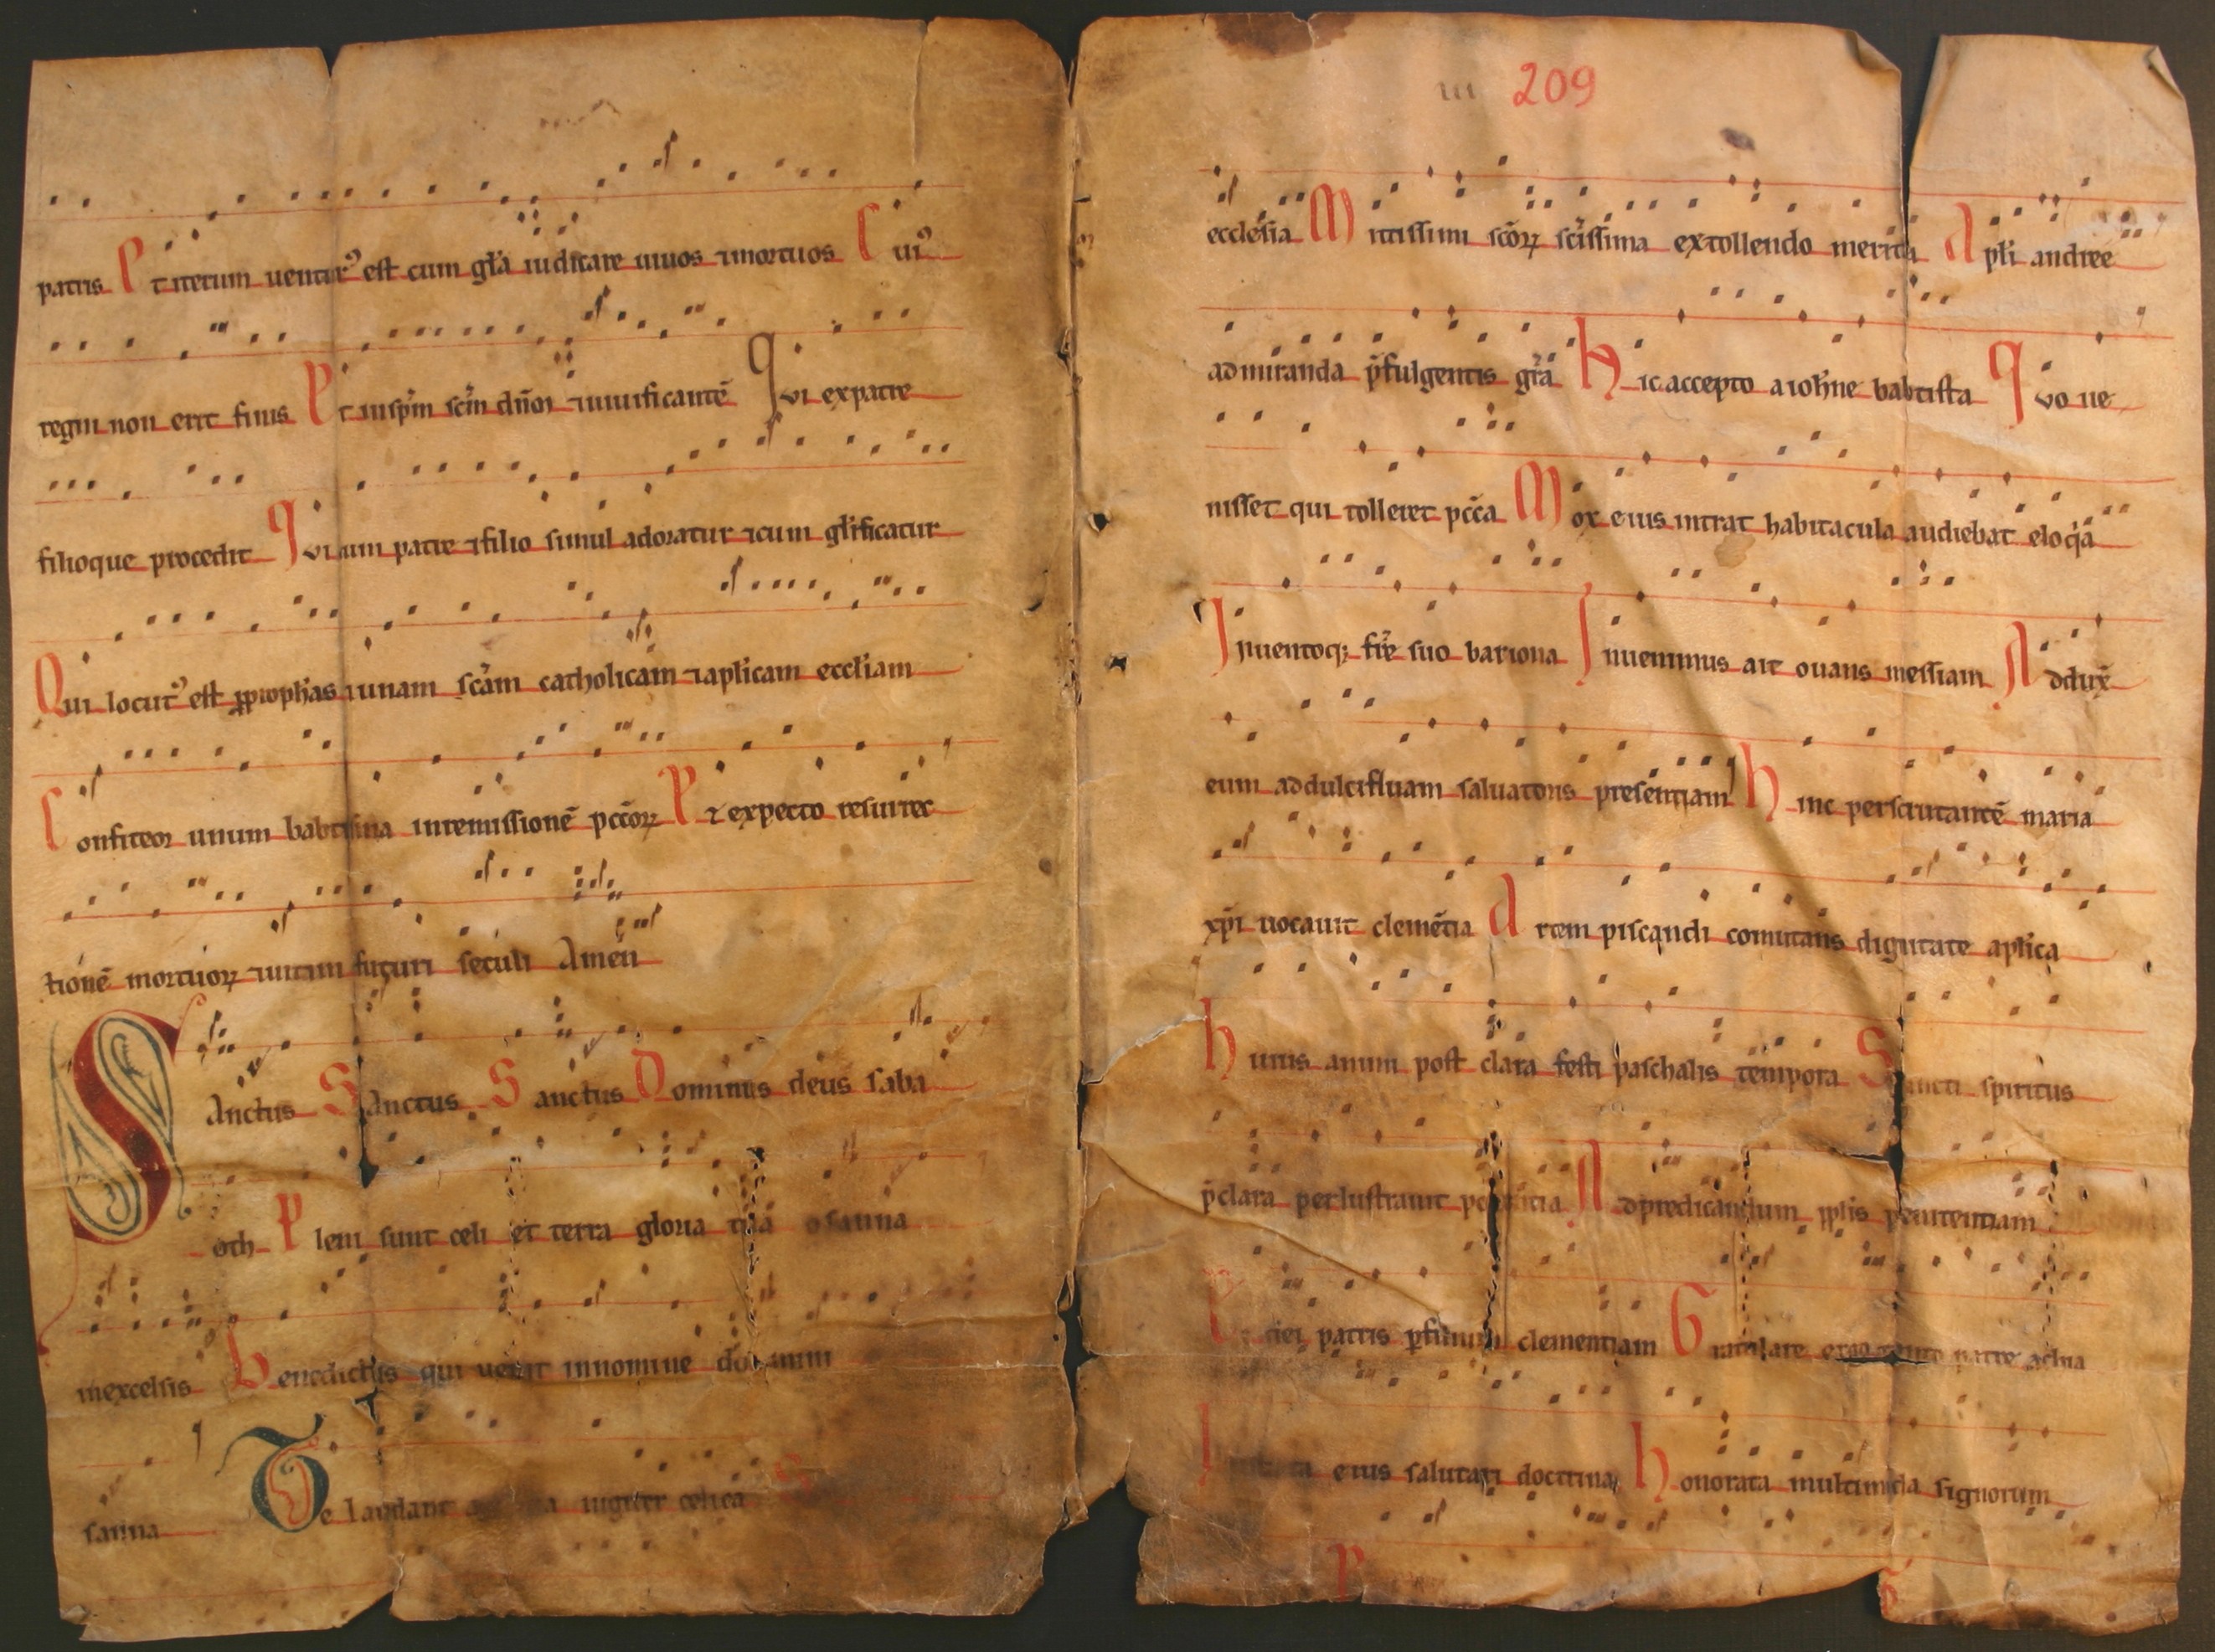 patris Et iterum uentur᾽ est cum gl̃a iudicare uiuos ⁊mortuos Cui᾽
regni non erit finis Et inspm̃ scm̃ dñm ⁊uiuificantẽ Qvi expatre
filioque procedit Qvi cum patre ⁊filio simul adoratur ⁊cum gl̃ificatur
Qui locut᾽ est ꝓprophãs ⁊unam scãm catholicam ⁊apl̃icam eccl̃iam
Confiteor unum babtisma inremissionẽ pccõꝝ Et expecto resurrec
tionẽ mortuoꝝ ⁊uitam futuri seculi Amen
SAnctus SAnctus Sanctus Dominus deus saba
oth Pleni sunt celi et terra gloria tua osanna
inexcelsis Benedictus qui uenit innomine domini
sanna Te laudant iugiter celica
III 209
ecclesia Mitissimi scõꝝ scissima extollendo merita Apl̃i andree
admiranda p̃fulgentis gr̃a Hic accepto aioh̃ne babtista Qvo ue
nisset qui tolleret pcc̃a Mox eius intrat habitacula audiebat eloq̃a
Inuentoqꝫ fr̃e suo bariona Inuenimus ait ouans messiam Addux̃
eum addulcifluam saluatoris presentiam Hinc perscrutantẽ maria
xp̃i uocauit clemẽtia Artem piscandi comutans dignitate apl̃ica
Huius anim post clara festi paschalis tempora Sancti spiritus
p̃clara perlustrauit potentia Adpredicandum ppl̃is penitentiam
dei patris clementiam Gratulare patre achia
eius salutari doctrina Honorata multimoda signorum